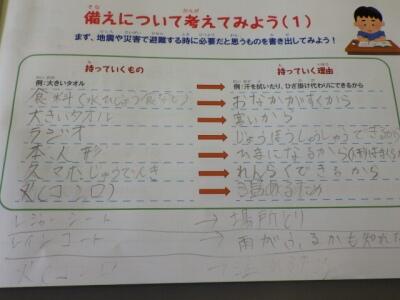 備えについて考えてみよう(1)
まず、地震や災害で避難する時に必要だと思うものを書き出してみよう!
持っていくもの 持っていく理由
例:大きいタオル 例:汗を拭いたり、ひざ掛け代わりにできるから
食料(水 おなかがすくから
大きいタオル 寒いから
ラジオ じょうほうしゅうしゅうできるから
本 人形 ひまになるから
スマホ じゅうでんき れんらくできるから
火(コンロ) 温めるため
レジャーシート → 場所とり
レインコート → 雨がふるかも知れな
火(コンロ)